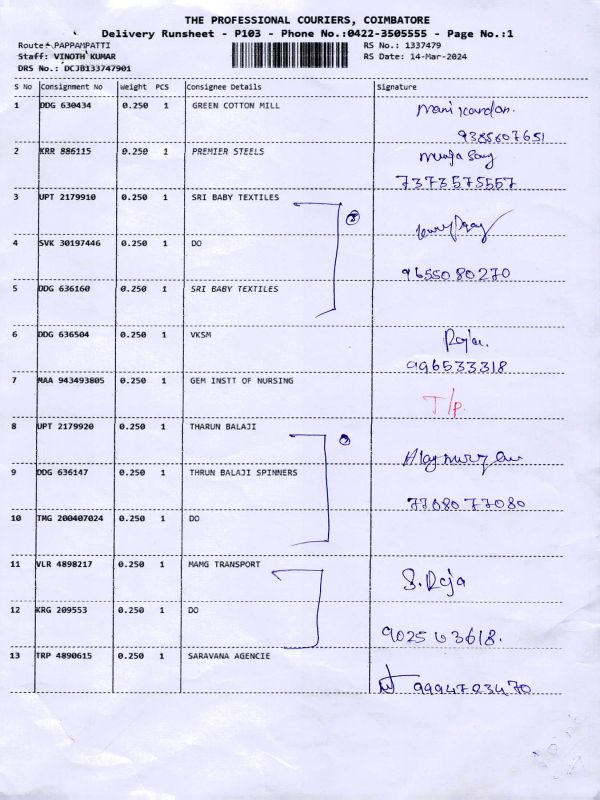 THE PROFESSIONAL COURIERS, COIMBATORE
Delivery Runsheet - P103 - Phone No.:0422-3505555 - Page No.:1
Route: PAPPAMPATTI RS No.: 1337479
Staff: VINOTH KUMAR RS Date: 14-Mar-2024
DRS No.: DCJB133747901
S No Consignment No Weight PCS Consignee Details Signature
1 DDG 630434 0.250 1 GREEN COTTON MILL
9385607651
2 KRR 886115 0.250 1 PREMIER STEELS
7373575557
3 UPT 2179910 0.250 1 SRI BABY TEXTILES
4 SVK 30197446 0.250 1 DO
9655080270
5 DDG 636160 0.250 1 SRI BABY TEXTILES
6 DDG 636504 0.250 1 VKSM
996533318
7 MAA 943493805 0.250 1 GEM INSTT OF NURSING
T/p.
8 UPT 2179920 0.250 1 THARUN BALAJI
9 DDG 636147 0.250 1 THRUN BALAJI SPINNERS
7708077080
10 TMG 200407024 0.250 1 DO
11 VLR 4898217 0.250 1 MAMG TRANSPORT
S. Roja
12 KRG 209553 0.250 1 DO
13 TRP 4890615 0.250 1 SARAVANA AGENCIE
9994723470